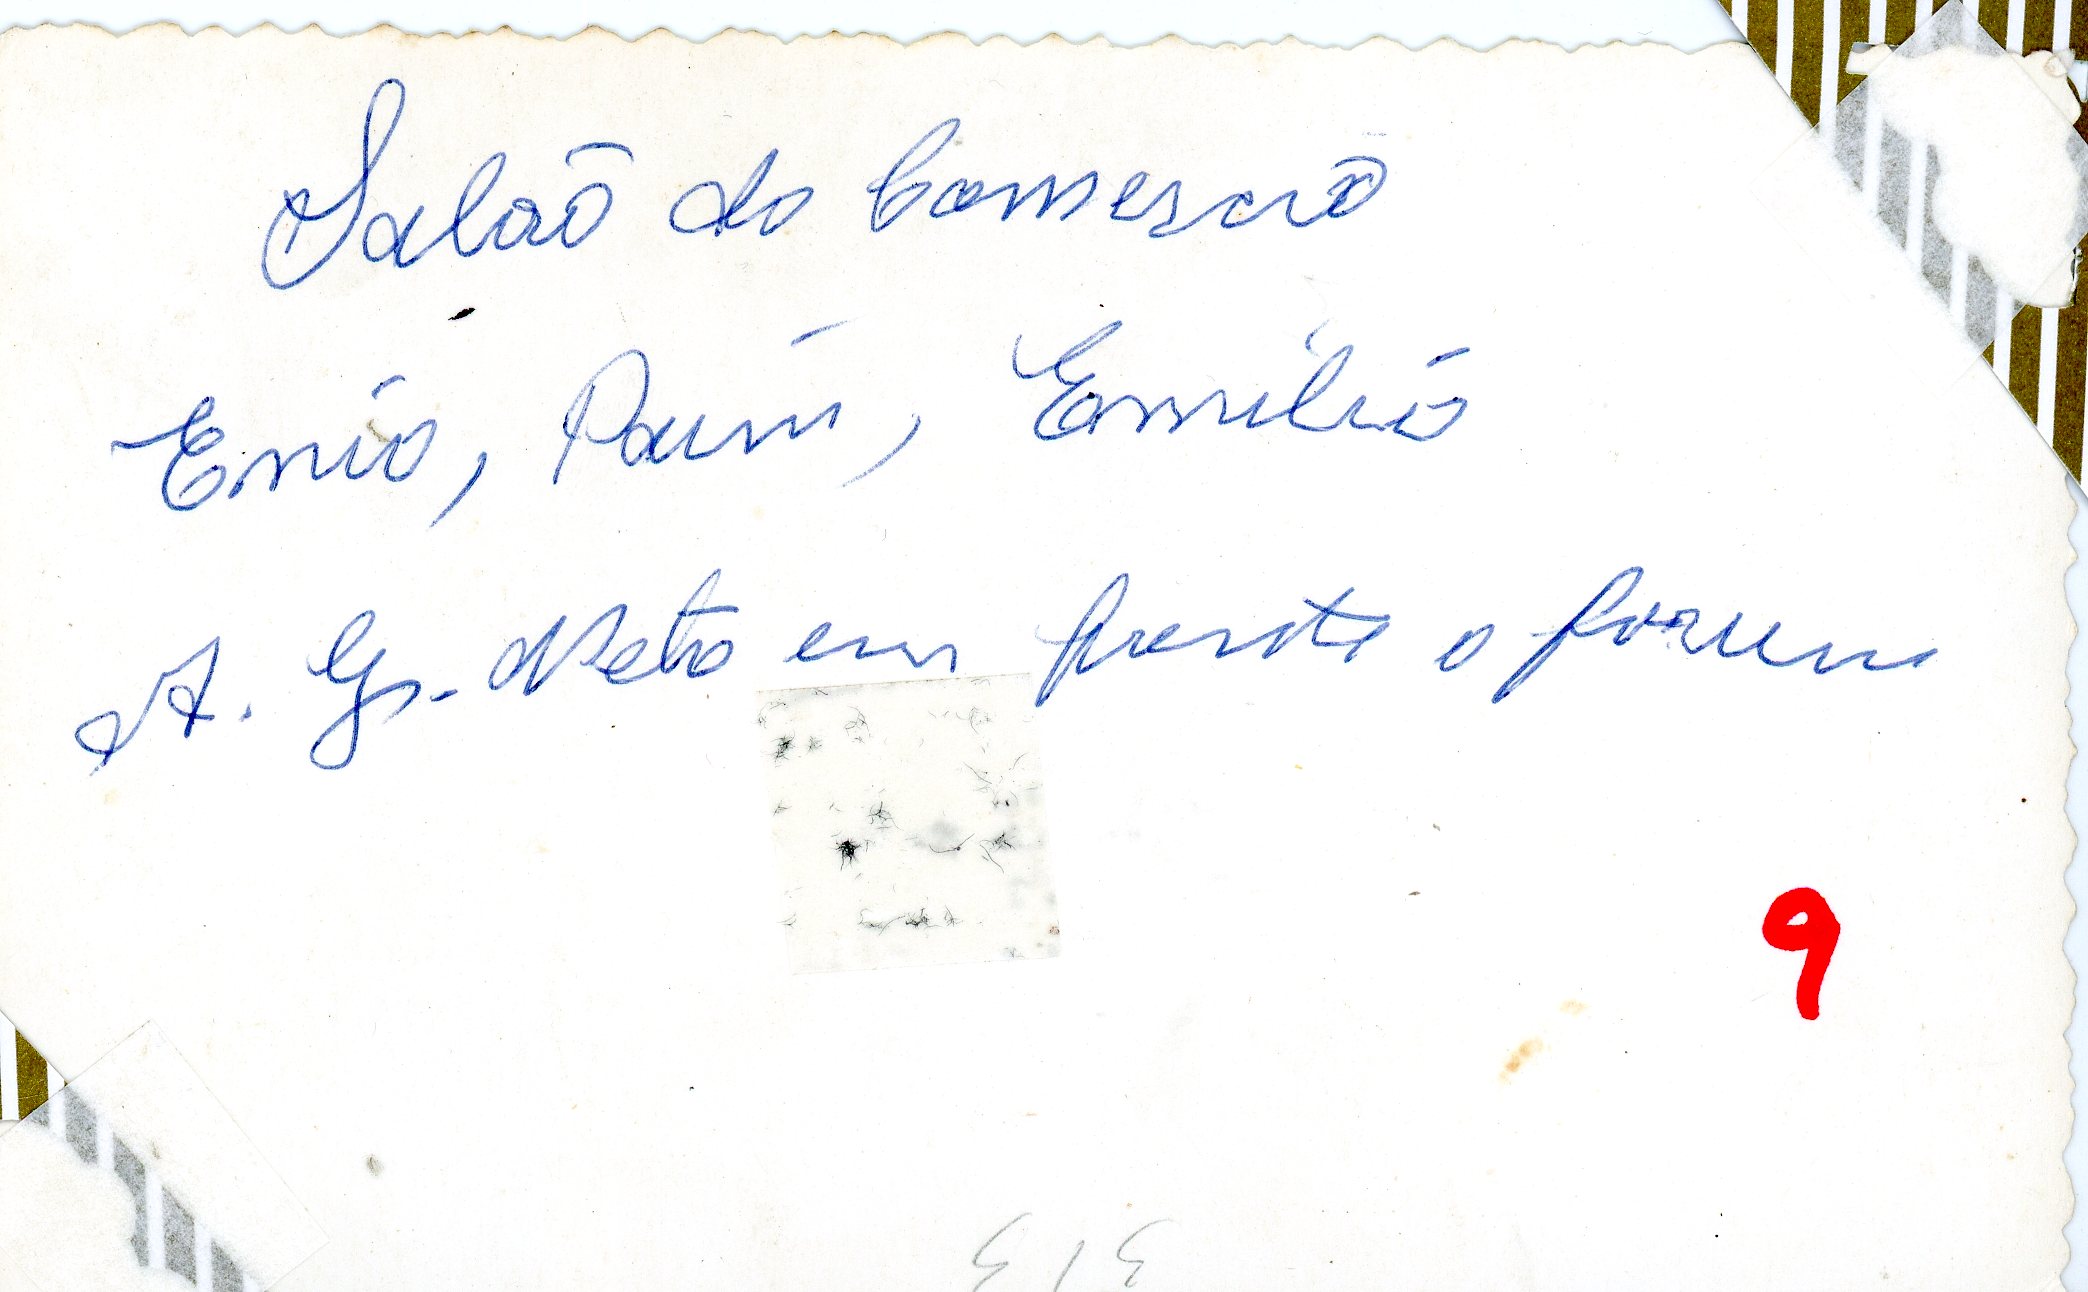 Salaõ do Comercio
Enio, Pauni, Emilio
A. Gr. Neto em frente o forum
9